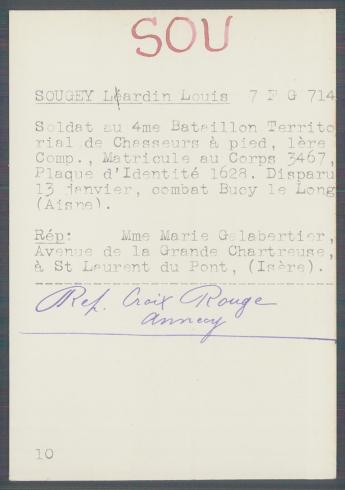 SOU
SOUGEY Léardin Louis 7 F G 714
Soldat au 4me Bataillon Territo
rial de Chasseurs à pied, 1ère
Comp., Matricule au Corps 3467,
Plaque d'Identité 1628. Disparu
13 janvier, combat Bucy le Long
(Aisne).
Rép: Mme Marie Galabertier,
Avenue de la Grande Chartreuse,
à St Laurent du Pont, (Isère).
Ref. Croix Rouge
Annecy
10